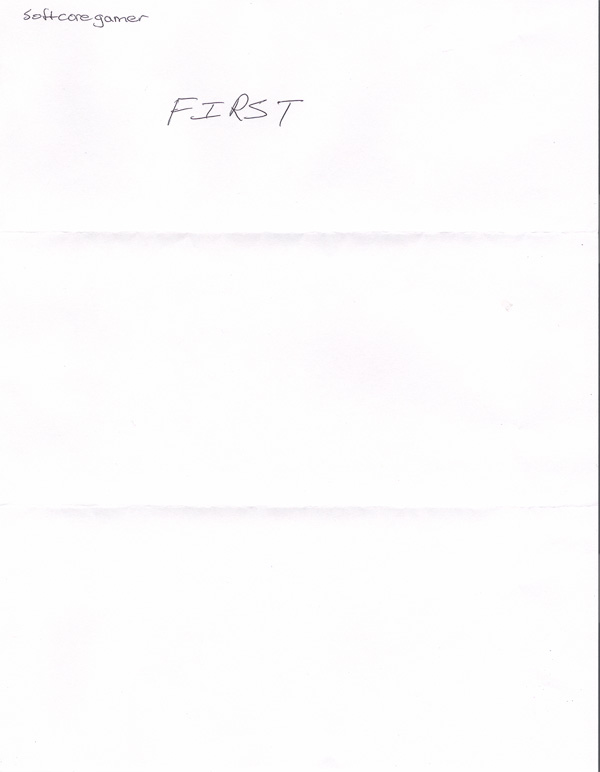 Softcoregamer
FIRST